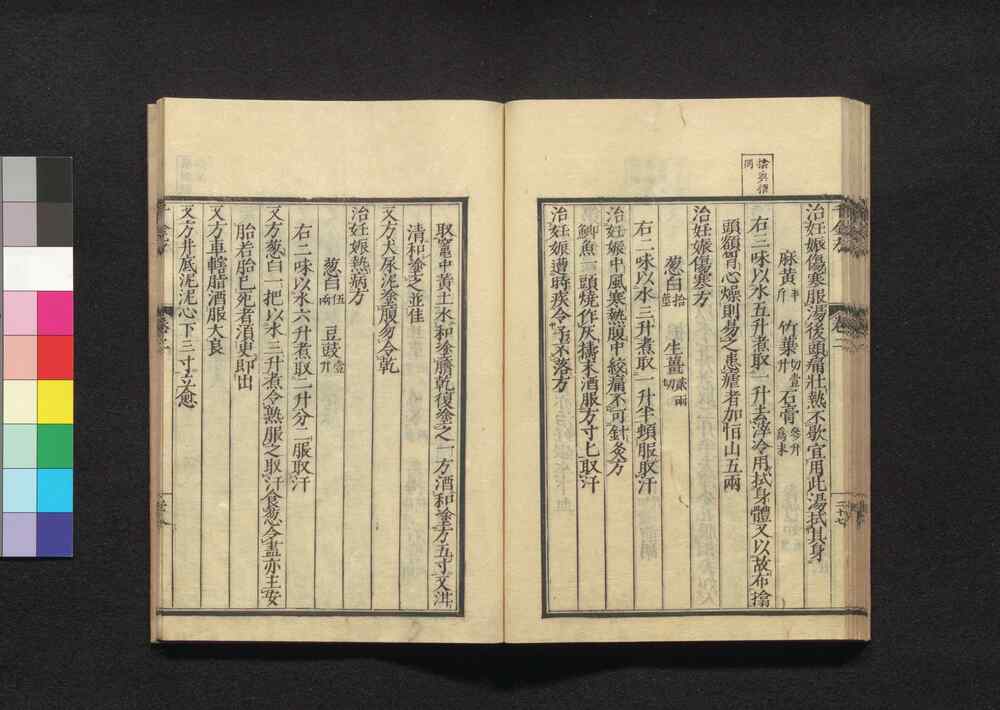 治妊娠傷寒服湯後頭痛壯熱不歇宜用此湯拭其身
麻黃半斤 竹葉切壹升 石膏參升為末
右三味以水五升煮取一升去滓冷用拭身體又以故布搨
頭額胷心燥則易之患瘧者加恒山五兩
治妊娠傷寒方
葱白拾莖 生薑貳兩切
右二味以水三升煮取一升半頓服取汗
治妊娠中風寒熱腹中絞痛不可針灸方
鯽魚一頭燒作灰擣末酒服方寸匕取汗
治妊娠遭時疾令子不落方
取竈中黃土水和塗臍乾復塗之一方酒和塗方五寸又泔
清和塗之並佳
又方犬尿泥塗腹勿令乾
治妊娠熱病方
葱白伍兩 豆豉壹升
右二味以水六升煮取二升分二服取汗
又方葱白一把以水三升煮令熟服之取汗食葱令盡亦主安
胎若胎已死者須臾即出
又方車轄脂酒服大良
又方井底泥泥心下三寸立愈
卷二
二十七